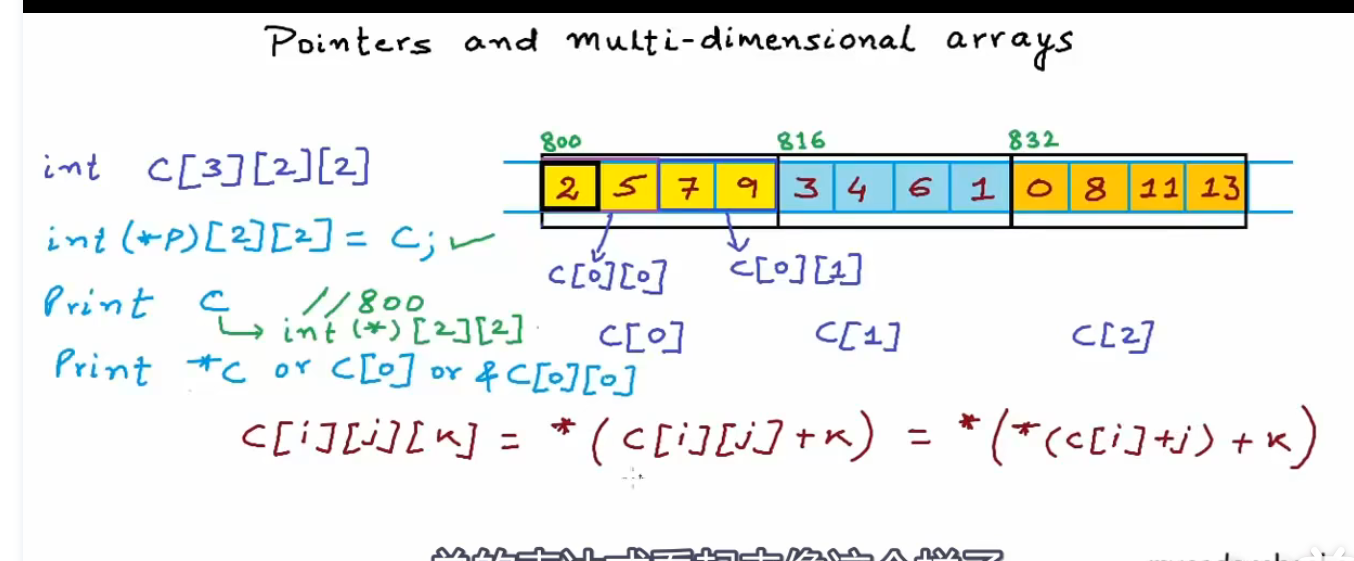 Pointers and multi-dimensional arrays
int C[3][2][2]
int (*P)[2][2] = C; ✓
Print C //800
↳ int (*)[2][2]
Print *C or C[0] or &C[0][0]
800 816 832
2 5 7 9 3 4 6 1 0 8 11 13
C[0][0] C[0][1]
C[0] C[1] C[2]
C[i][j][k] = *(C[i][j]+k) = *(*(C[i]+j)+k)